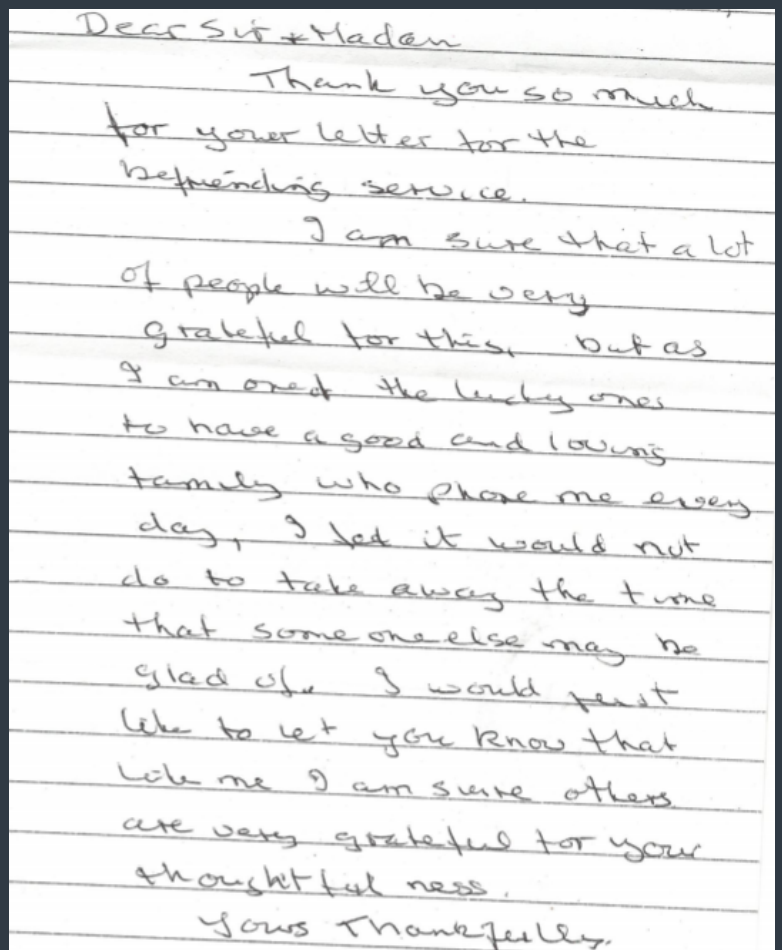 Dear Sir + Madam
Thank you so much
for your letter for the
befriending service.
I am sure that a lot
of people will be very
grateful for this, but as
I am one of the lucky ones
to have a good and loving
family who phone me every
day, I feel it would not
do to take away the time
that some one else may be
glad of. I would just
like to let you know that
like me I am sure others
are very grateful for your
thoughtful ness.
Yours Thankfully.